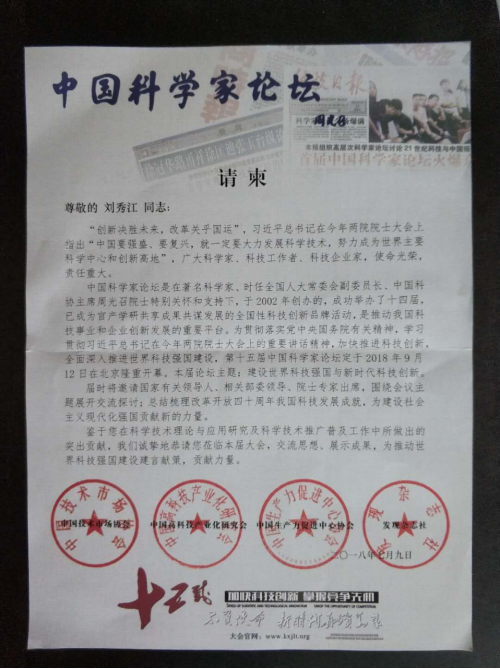 中国科学家论坛
科技日报
本报组织高层次科学家论坛讨论21世纪科技与中国
首届中国科学家论坛火爆
请柬
尊敬的 刘秀江 同志：
“创新决胜未来，改革关乎国运”，习近平总书记在今年两院院士大会上
指出“中国要强盛、要复兴，就一定要大力发展科学技术，努力成为世界主要
科学中心和创新高地”，广大科学家、科技工作者、科技企业家，使命光荣，
责任重大。
中国科学家论坛是在著名科学家、时任全国人大常委会副委员长、中国科
协主席周光召院士特别关怀和支持下，于2002年创办的，成功举办了十四届，
已成为官产学研共享成果共谋发展的全国性科技创新品牌活动，是推动我国科
技事业和企业创新发展的重要平台。为贯彻落实党中央国务院有关精神，学习
贯彻习近平总书记在今年两院院士大会上的重要讲话精神，加快推进科技创新，
全面深入推进世界科技强国建设，第十五届中国科学家论坛定于2018年9月
12日在北京隆重开幕。本届论坛主题：建设世界科技强国与新时代科技创新。
届时将邀请国家有关领导人、相关部委领导、院士专家出席，围绕会议主
题展开交流探讨；总结梳理改革开放四十周年我国科技发展成就，为建设社会
主义现代化强国贡献新的力量。
鉴于您在科学技术理论与应用研究及科学技术推广普及工作中所做出的
突出贡献，我们诚挚地恭请您莅临本届大会，交流思想、展示成果，为推动世
界科技强国建设建言献策，贡献力量。
中国技术市场协会 中国高科技产业化研究会 中国生产力促进中心协会 发现杂志社
二〇一八年七月九日
加快科技创新 掌握竞争先机
SPEED OF SCIENTIFIC AND TECHNOLOGICAL INNOVATION
大会官网：www.kxjlt.org